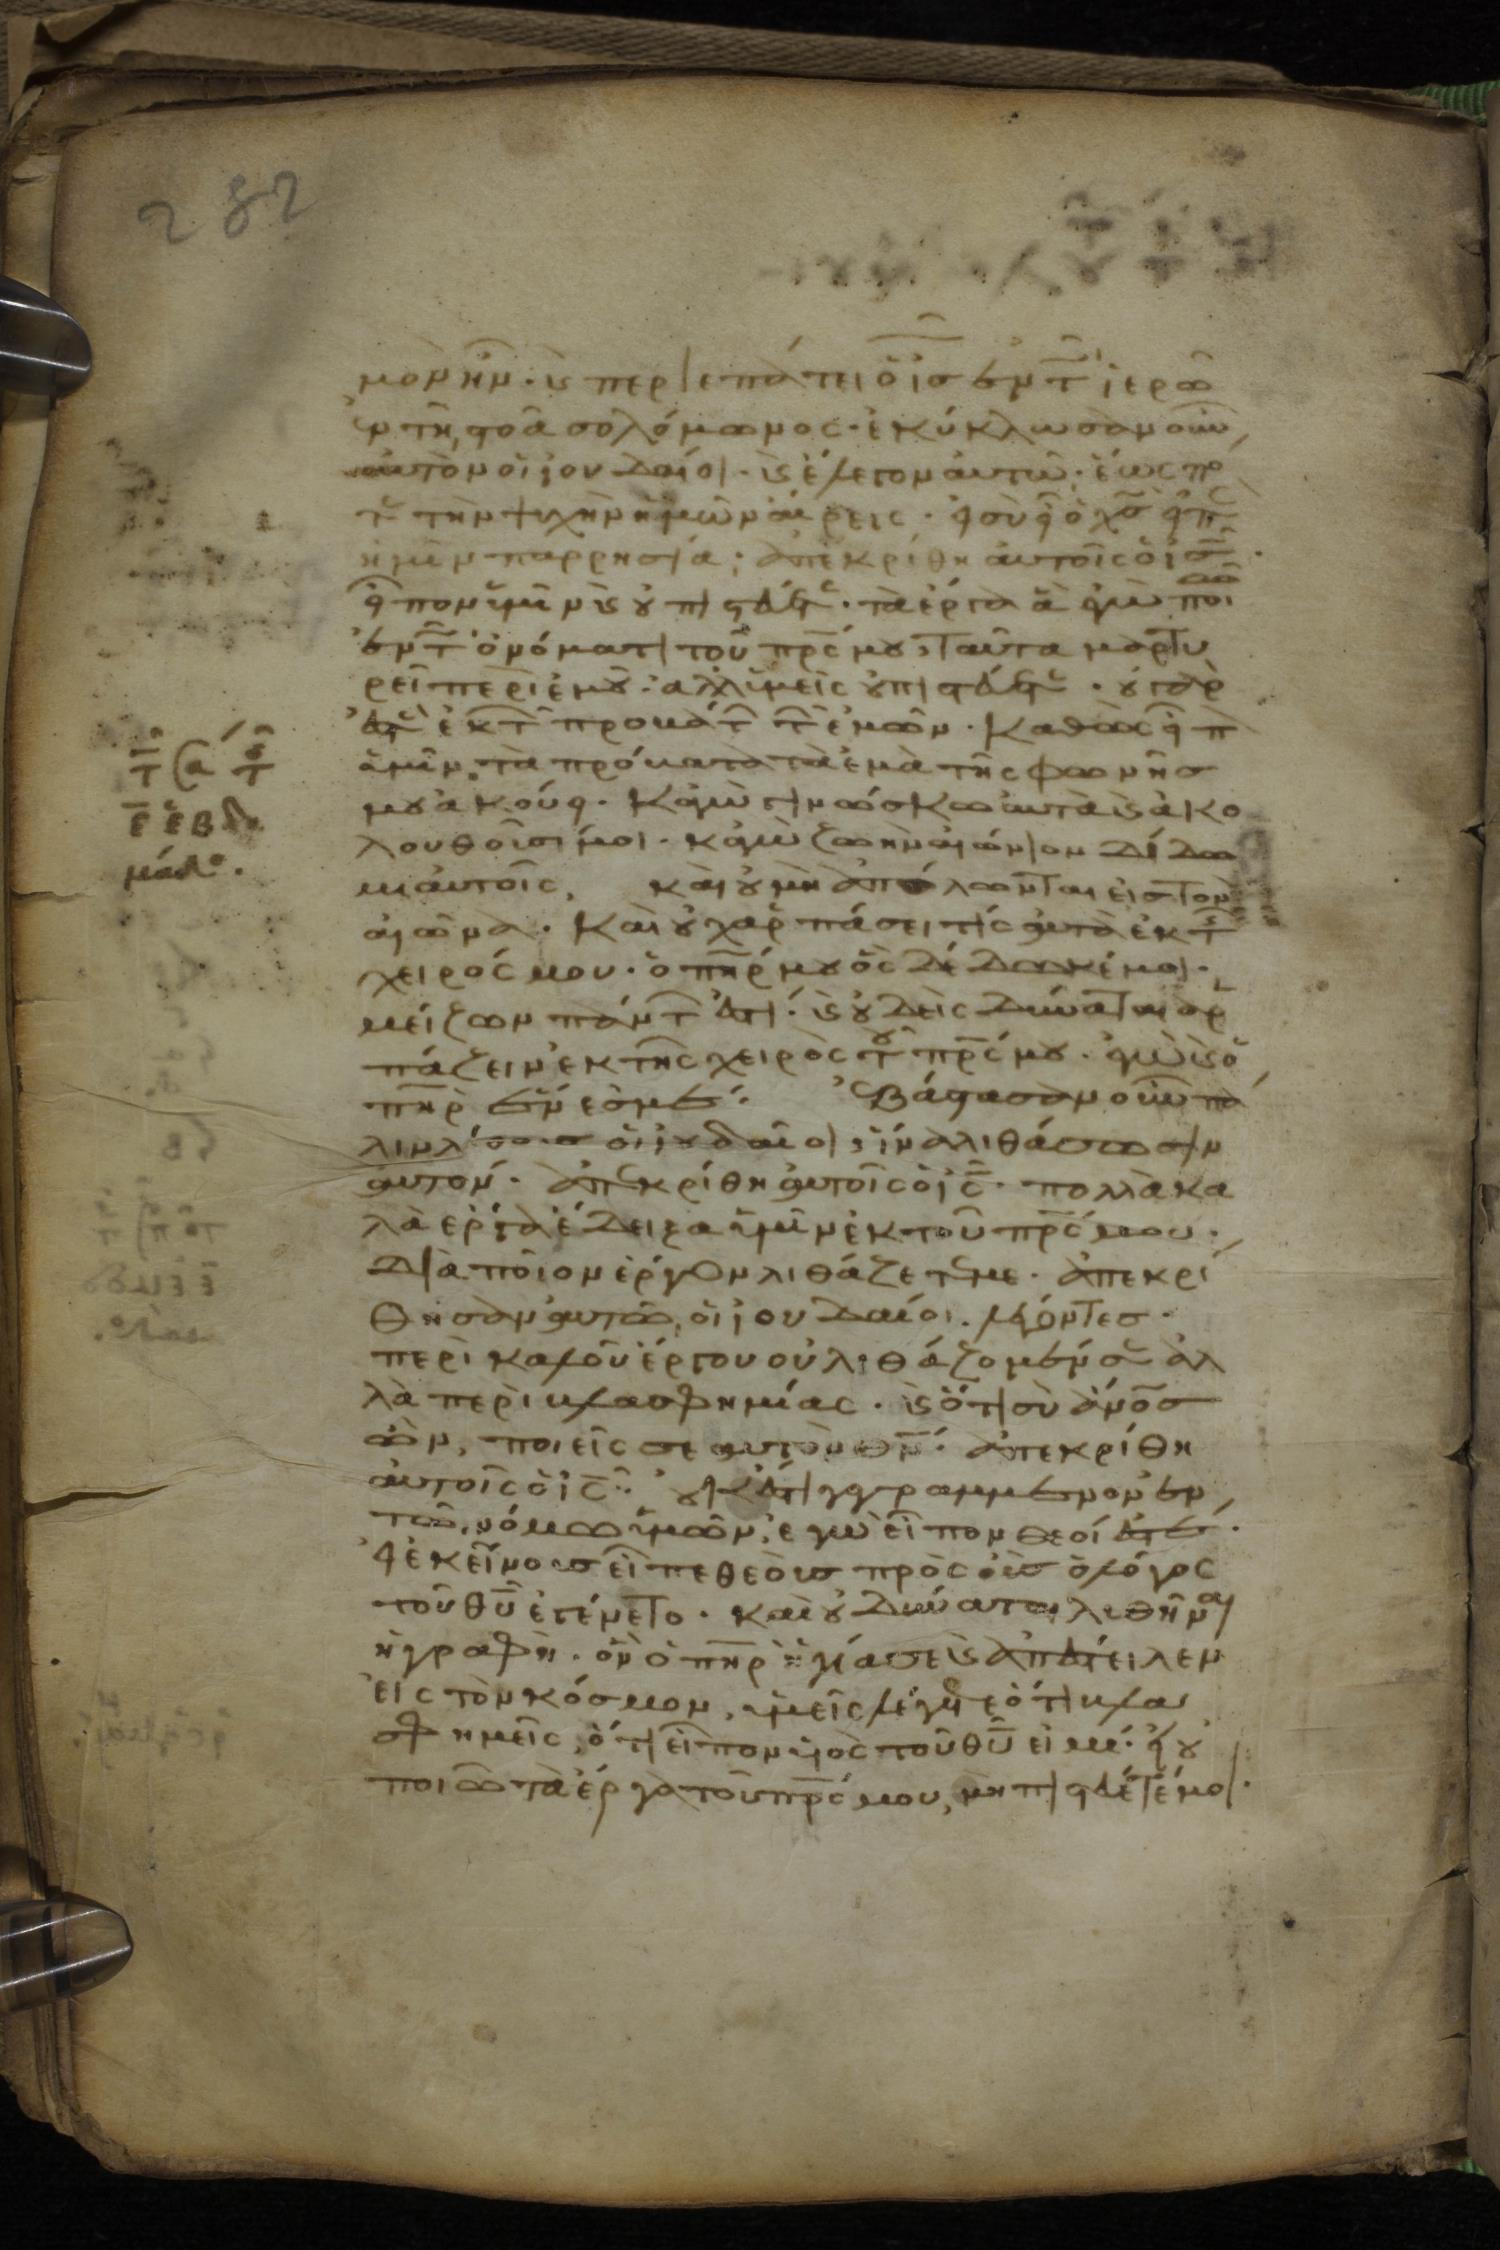 282
μὼν ἦν. ϗ περιεπάτει ὁ ις ἐν τ ἱερῶ
ἐν τῆ στοᾶ σολόμωνος. ἐκύκλωσαν οὖν
αὐτὸν οἱ ἰουδαῖοι. ϗ ἔλεγον αὐτῶ. ἕως πο
τε τὴν ψυχὴν ἡμῶν αἴρεις. εἰ σὺ εἶ ὁ χς εἰπὲ
ἡμῖν παρρησία; ἀπεκρίθη αὐτοῖς ὁ ις.
εἶπον ὑμῖν ϗ οὐ πιστεύετε. τὰ ἔργα ἃ ἐγὼ ποιῶ
ἐν τ ὀνόματι τοῦ πρς μου, ταῦτα μαρτυ
ρεῖ περὶ ἐμοῦ. ἀλλ ὑμεῖς οὐ πιστεύετε. οὐ γάρ
ἐστε ἐκ τ προβάτ τ ἐμῶν. Καθὼς εἶπ
ὑμῖν, τὰ πρόβατα τὰ ἐμὰ τῆς φωνῆς
μου ἀκούει. Κἀγὼ γινώσκω αὐτὰ ϗ ἀκο
λουθοῦσί μοι. κἀγὼ ζωὴν αἰώνιον δίδω
μι αὐτοῖς, καὶ οὐ μὴ ἀπόλωνται εἰς τὸν
αἰῶνα. Καὶ οὐχ ἁρπάσει τίς αὐτὰ ἐκ τ
χειρός μου. ὁ πηρ μου ὃς δέδωκέ μοι.
μείζων πάντ ἐστι. ϗ οὐδεὶς δύναται ἁρ
πάζειν ἐκ τῆς χειρὸς τοῦ πρς μου. ἐγὼ ϗ ὁ
πηρ ἕν ἐσμεν. Ἐβάστασαν οὖν πά
λιν λίθους οἱ ἰουδαῖοι, ἵνα λιθάσωσιν
αὐτόν. ἀπεκρίθη αὐτοῖς ὁ ις. πολλὰ κα
λὰ ἔργα ἔδειξα ὑμῖν ἐκ τοῦ πρς μου.
Διὰ ποῖον ἔργον λιθάζετε με. ἀπεκρί
θησαν αὐτῶ, οἱ ἰουδαῖοι. λέγοντες.
περὶ καλοῦ ἔργου οὐ λιθάζομέν σε ἀλ
λὰ περὶ βλασφημίας. ϗ ὅτι σὺ ἄνος
ὢν, ποιεῖς σεαυτὸν θν. ἀπεκρίθη
αὐτοῖς ὁ ις. οὐκ ἔστι γεγραμμένον ἐν
τῶ, νόμω ὑμῶν, ἐγὼ εἶπον θεοί ἐστέ.
εἰ ἐκείνους εἶπε θεοὺς πρὸς οὓς ὁ λόγος
τοῦ θυ ἐγένετο. καὶ οὐ δύναται λυθῆναι
ἡ γραφὴ. ὃν ὁ πηρ ἡγίασε ϗ ἀπέστειλεν
εἰς τὸν κόσμον, ὑμεῖς λέγετε ὅτι βλα
σφημεῖς, ὅτι εἶπον υἱὸς τοῦ θυ εἰμί. εἰ οὐ
ποιῶ τὰ ἔργα τοῦ πρς μου, μὴ πιστεύετέ μοι.